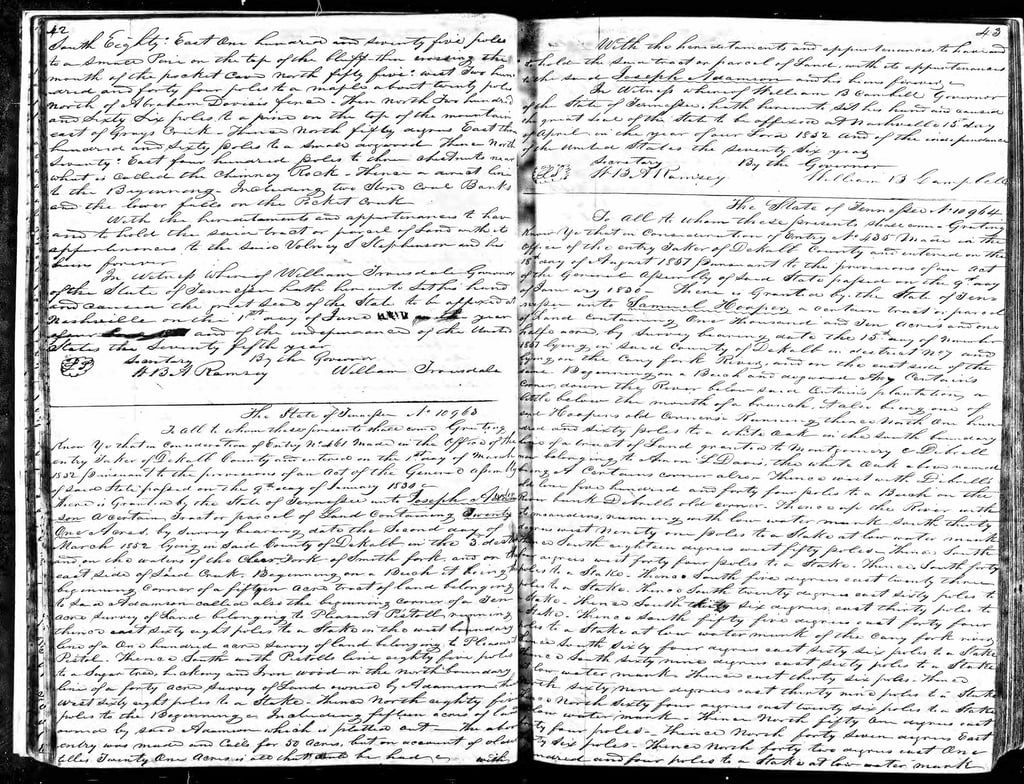 42
South Eighty: East One hundred and seventy five poles
to a Small Pine on the top of the bluff then crossing the
mouth of the pocket Cave North fifty five: west Two hun
dred and forty four poles to a maple about twenty poles
North of Abraham Davis's fence - Then North Two hundred
and Sixty Six poles to a pine on the top of the mountain
east of Grays Creek - Thence North fifty degrees East three
hundred and sixty poles to a small Thence North
Seventy: East four hundred poles to three chestnuts near
what is called the Chimney Rock - Thence a direct line
to the Beginning - Including two Stone Coal Banks
and the lower falls on the Pocket Creek
With the hereditaments and appurtenances to have
and to hold the said tract or parcel of land with its
appurtenances to the said Volney S Stephenson and his
heirs forever
In Witness whereof William Trousdale Governor
of the State of Tennessee hath hereunto Set his hand
and caused the great Seal of the State to be affixed at
Nashville on the 1st day of June year
and of the independence of the United
States the Seventy fifth year
Secretary By the Governor
W B A Ramsey William Trousdale
The State of Tennessee No 10963
To all to whom these presents shall come Greeting
Know Ye that in Consideration of Entry No 461 made in the Office of the
entry Taker of DeKalb County and entered on the 1st day of March
1852 pursuant to the provisions of an Act of the General Assembly
of said State passed on the 9th day of January 1830
There is Granted by the State of Tennessee unto Joseph Adam
son A certain Tract or parcel of Land Containing Twenty
One Acres by Survey bearing date the Second day of
March 1852 lying in Said County of DeKalb in the 3 district
and on the waters of the Clear Fork of Smiths fork and on the
east side of Said Creek. Beginning on a Beech it being the
beginning Corner of a fifteen acre tract of land belonging
to said Adamson called also the beginning corner of a Ten
acre survey of Land belonging to Pleasant Pistole running
thence east sixty eight poles to a Stake in the west boundary
line of a One hundred acre survey of land belonging to Pleasant
Pistol. Thence South with Pistolls line eighty five poles
to a Sugar tree, hickory and Iron wood in the North boundary
line of a forty acre survey of Land owned by Adamson thence
west sixty eight poles to a Stake. Thence North eighty five
poles to the Beginning Including fifteen acres of land
owned by said Adamson which is platted out - The above
entry was made and Calls for 50 Acres, but on account of older
titles Twenty One Acres is all that could be had with
43
With the hereditaments and appurtenances to have and
to hold the said tract or parcel of Land, with its appurtenances
to the said Joseph Adamson and his heirs forever
In Witness whereof William B Campbell Governor
of the State of Tennessee, hath hereunto set his hand and caused
the great Seal of the State to be affixed at Nashville 15 day
of April in the year of our Lord 1852 And of the independence
of the United States the Seventy Six year
Secretary By the Governor
W B A Ramsey William B Campbell
The State of Tennessee No 10964
To all to whom these presents shall come Greeting
Know Ye that in Consideration of Entry No 435 Made in the
Office of the entry Taker of DeKalb County and entered on the
day of August 1851 pursuant to the provisions of an Act
of the General Assembly of Said State passed on the 9th day
of January 1830 - There is Granted by the State of Tenn
essee unto Samuel C Hooper a certain tract or parcel
of land Containing One Thousand and Ten Acres and one
half acre by Survey bearing date the 15th day of November
1851 lying in said County of DeKalb in district No 7 and
lying on the Caney fork River, and on the east side of the
Same Beginning on a Beech and dogwood
corner, down the River below said plantation, a
little below the mouth of a branch, it also being one of
said Hoopers old Corners Running thence North One hun
dred and sixty poles to a white oak in the South boundary
line of a tract of Land granted to Montgomery & Dibrell
now belonging to Ann L Davis the white Oak above named
being A corner also. Thence west with Dibrells
line five hundred and forty four poles to a Beech on the
River bank Dibrells old corner. Thence up the River with
its meanders, running with low water mark South thirty
degrees west Ninety one poles to a Stake at low water mark
Thence South eighteen degrees west fifty poles - Thence South
degrees west forty four poles to a Stake. Thence South forty
poles to a Stake. Thence South five degrees east twenty three
poles to a Stake. Thence South twenty degrees east sixty poles to
a Stake Thence South thirty six degrees east thirty poles to a
Stake. Thence South fifty five degrees east forty four
poles to a Stake at low water mark of the Caney fork river
Thence South sixty four degrees east sixty six poles to a Stake
Thence South sixty nine degrees east sixty poles to a Stake
at low water mark Thence east thirty six poles. Thence
North sixty nine degrees east thirty nine poles to a Stake
Thence North sixty four degrees east twenty six poles to a Stake
at low water mark - Thence North fifty One degrees east
forty four poles - Thence North forty seven degrees East
sixty six poles - Thence North forty two degrees east One
hundred and four poles to a Stake at low water mark